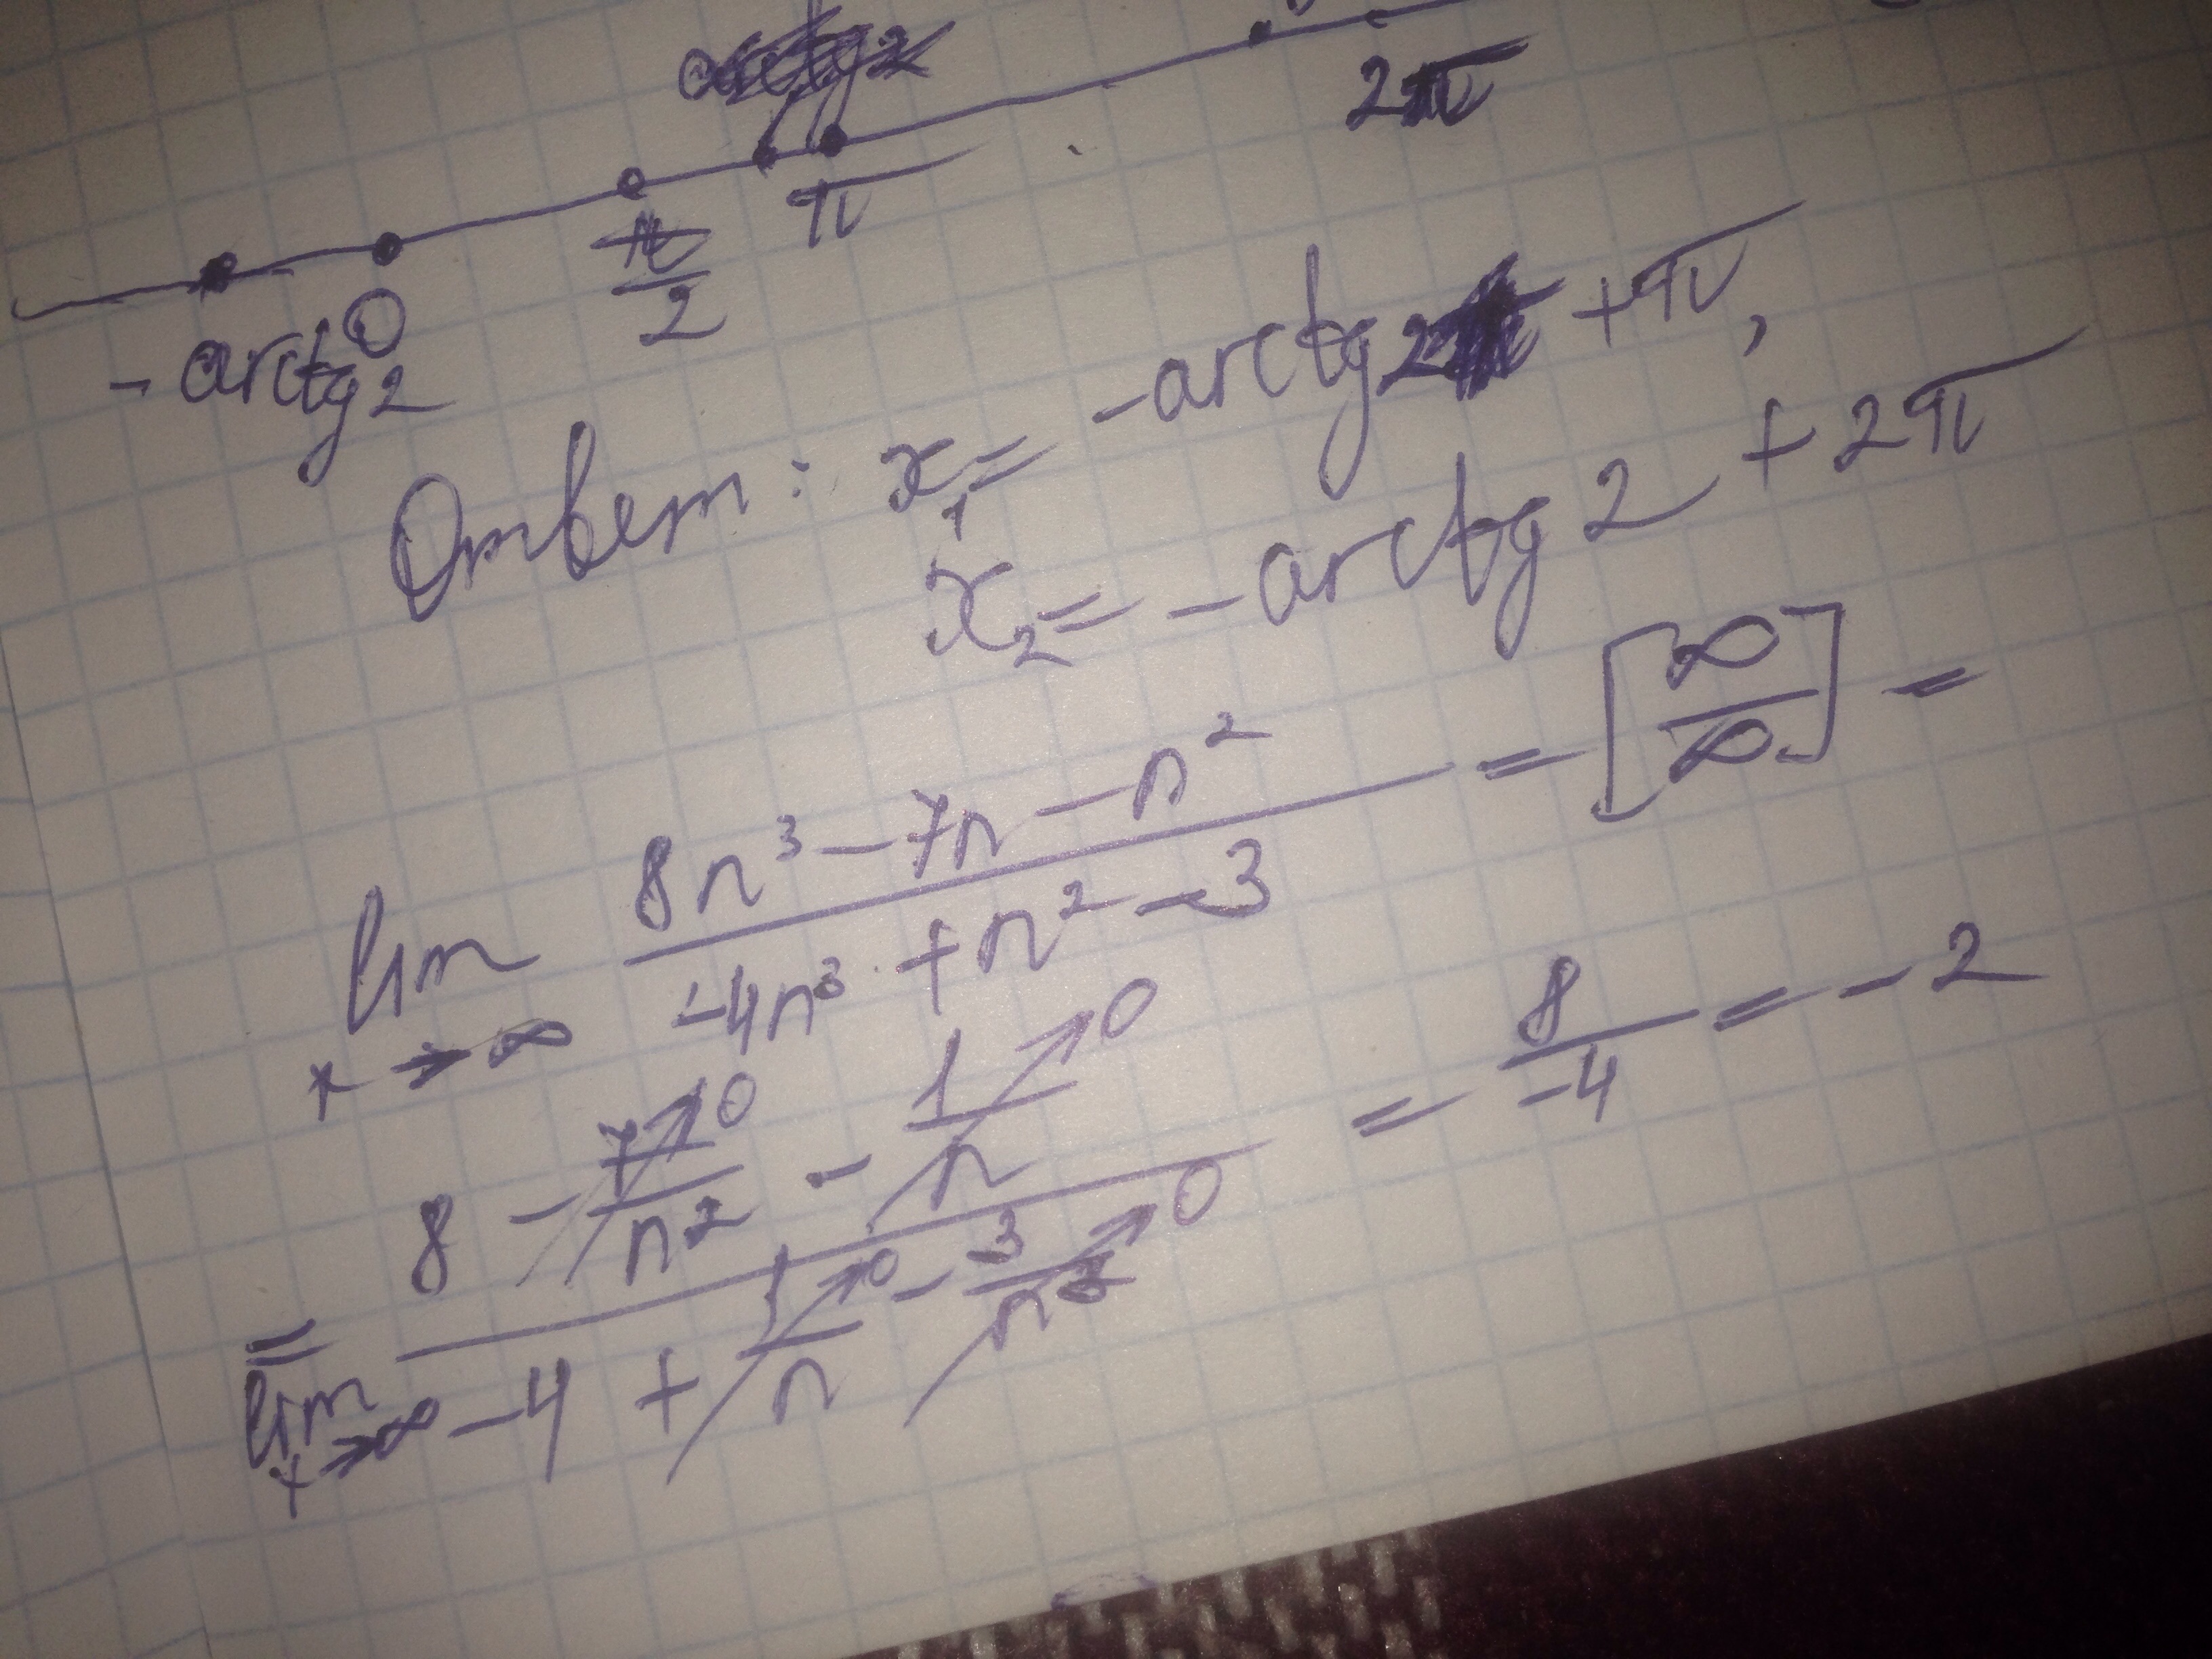 2π
0 π/2 π
-arctg2
Ответ: x₁ = -arctg2 +π,
x₂ = -arctg 2 + 2π
lim x→∞ (8n³ - 7n - n²)/(-4n³ + n² - 3) = [∞/∞] =
= lim x→∞ (8 - 7/n² →0 - 1/n →0)/(-4 + 1/n →0 - 3/n³ →0) = 8/-4 = -2